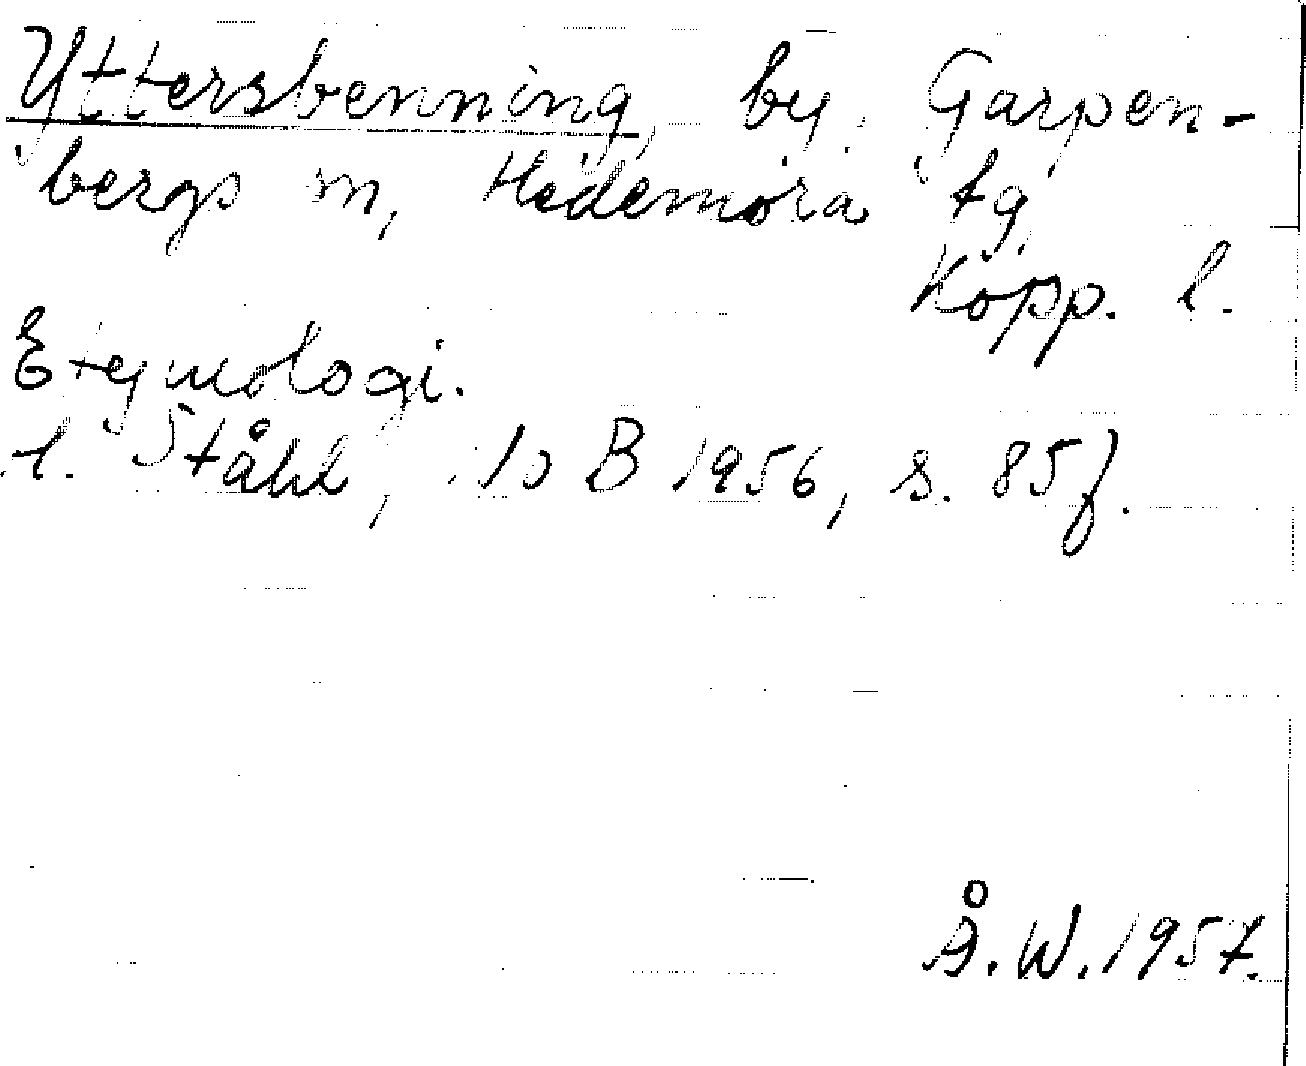 Yttersbenning, by. Garpen-
bergs sn, Hedemora tg
Kopp. l.
Etymologi.
Ståhl, B 1956, s. 85 f.
Å. W. 1957.